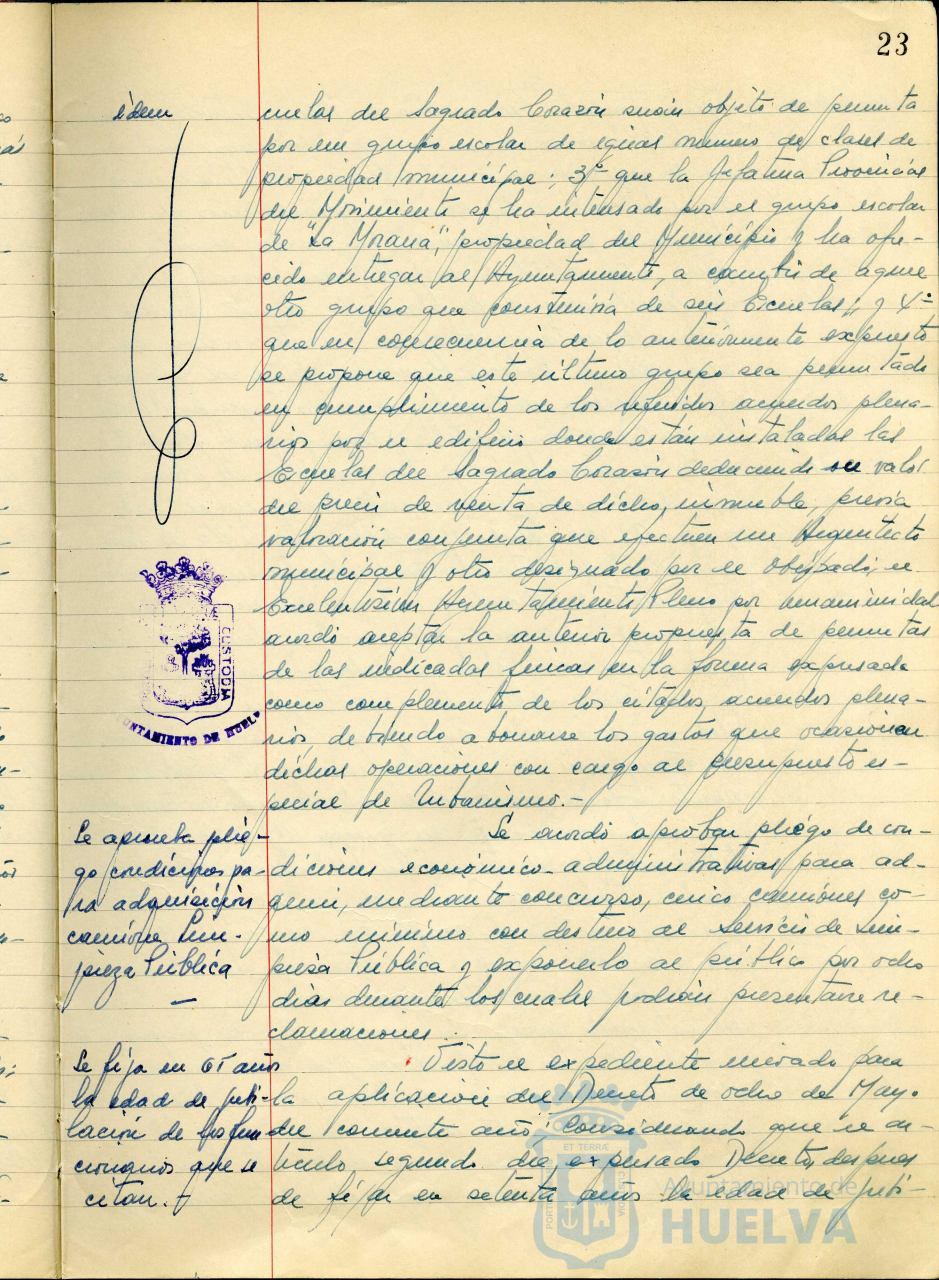 23
idem
cuelas del Sagrado Corazón serían objeto de permuta
por un grupo escolar de igual número de clases de
propiedad municipal; 3º que la Jefatura Provincial
del Movimiento se ha interesado por el grupo escolar
de "La Morana", propiedad del Municipio y ha ofre-
cido entregar al Ayuntamiento, a cambio de aquel
otro grupo que construiría de seis Escuelas; y 4º
que en consecuencia de lo anteriormente expuesto
se propone que este último grupo sea permutado
en cumplimiento de los referidos acuerdos plena-
rios por el edificio donde están instaladas las
Escuelas del Sagrado Corazón deduciendo su valor
del precio de venta de dicho inmueble, previa
valoración conjunta que efectúen un Arquitecto
municipal y otro designado por el Obispado; el
Excelentísimo Ayuntamiento Pleno por unanimidad
acordó aceptar la anterior propuesta de permutas
de las indicadas fincas en la forma expresada
como complemento de los citados acuerdos plena-
rios, debiendo abonarse los gastos que ocasionen
dichas operaciones con cargo al presupuesto es-
pecial de Urbanismo.-
CUSTODIA
UNTAMIENTO DE HUELV
Se aprueba plie-
go condiciones pa-
ra adquisición
camiones Lim-
pieza Pública
Se acordó aprobar pliego de con-
diciones económico-administrativas para ad-
quirir, mediante concurso, cinco camiones co-
mo mínimo con destino al Servicio de Lim-
pieza Pública y exponerlo al público por ocho
días durante los cuales podrán presentarse re-
clamaciones.
Se fija en 65 años
la edad de jubi-
lación de los fun-
cionarios que se
citan.-
Visto el expediente incoado para
la aplicación del Decreto de ocho de Mayo
del corriente año; Considerando que el ar-
tículo segundo del expresado Decreto, después
de fijar en setenta años la edad de jubi-
ET TERRA
Ayuntamiento de
HUELVA